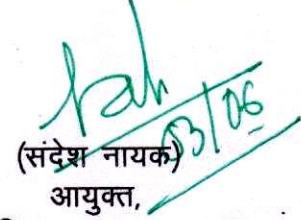 03/06
(संदेश नायक)
आयुक्त,